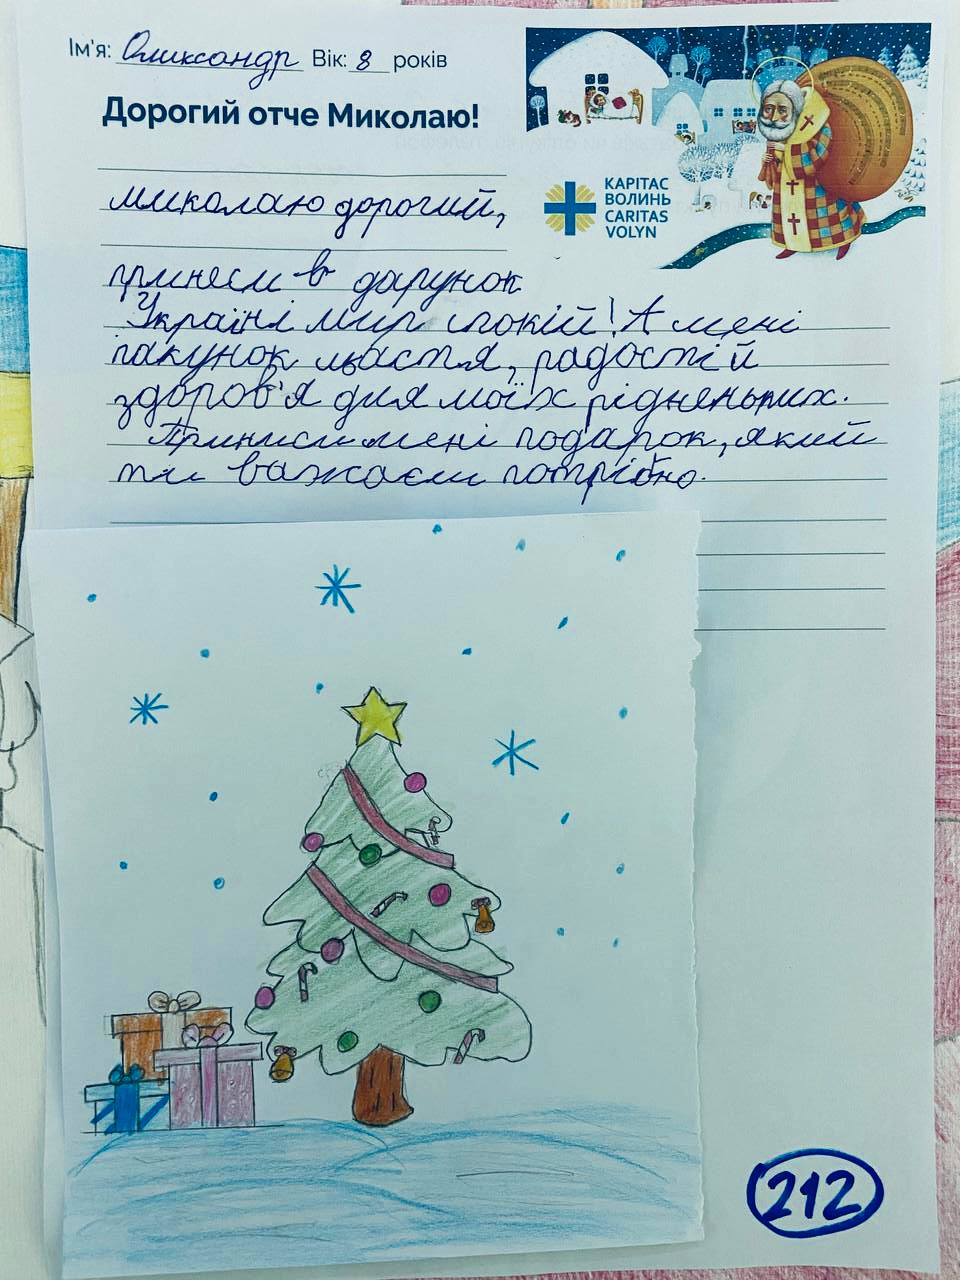 Ім'я: Оликсандр Вік: 8 років
Дорогий отче Миколаю!
КАРІТАС
ВОЛИНЬ
CARITAS
VOLYN
миколаю дорогий,
принеси в дарунок
Україні мир спокій! А мені
пакунок щастя, радості й
здоров'я для моїх рідненьких.
Приниси мені подарок, який
ти важаєш потрібно.
212